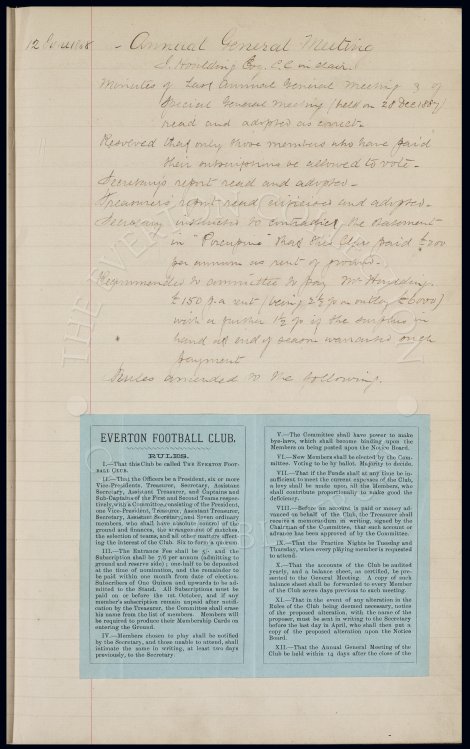 12 June 1888 - Annual General Meeting
J. Houlding Esq. C.C. in chair.
Minutes of Last Annual General Meeting & of
Special General Meeting (held on 28 Dec 1887)
read and adopted as correct.
Resolved that only those members who have paid
their subscriptions be allowed to vote.
Secretary's report read and adopted.
Treasurer's report read, criticised and adopted.
Secretary instructed to contradict the statement
in "Porcupine" that this Club paid
per annum as rent of ground.
Recommended to committee to pay Mr Houlding
£150 p.a rent (being 2½ % on outlay £6000)
with a further 1½ % if the surplus in
hand at end of season warranted such
payment
Rules amended to the following.
EVERTON FOOTBALL CLUB.
RULES.
I.—That this Club be called THE EVERTON FOOT-
BALL CLUB.
II.—That the Officers be a President, six or more
Vice-Presidents, Treasurer, Secretary, Assistant
Secretary, Assistant Treasurer, and Captains and
Sub-Captains of the First and Second Teams respec-
tively, with a Committee, consisting of the President,
one Vice-President, Treasurer, Assistant Treasurer,
Secretary, Assistant Secretary, and Seven ordinary
members, who shall have absolute control of the
ground and finances, the arrangement of matches,
the selection of teams, and all other matters affect-
ing the interest of the Club. Six to form a quorum
III.—The Entrance Fee shall be 5/- and the
Subscription shall be 7/6 per annum (admitting to
ground and reserve side); one-half to be deposited
at the time of nomination, and the remainder to
be paid within one month from date of election.
Subscribers of One Guinea and upwards to be ad-
mitted to the Stand. All Subscriptions must be
paid on or before the 1st October, and if any
member's subscription remain unpaid after notifi-
cation by the Treasurer, the Committee shall erase
his name from the list of members. Members will
be required to produce their Membership Cards on
entering the Ground.
IV.—Members chosen to play shall be notified
by the Secretary, and those unable to attend, shall
intimate the same in writing, at least two days
previously, to the Secretary
V.—The Committee shall have power to make
bye-laws, which shall become binding upon the
Members on being posted upon the Notice Board.
VI.—New Members shall be elected by the Com-
mittee. Voting to be by ballot. Majority to decide.
VII.—That if the Funds shall at any time be in-
sufficient to meet the current expenses of the Club,
a levy shall be made upon all the Members, who
shall contribute proportionally to make good the
deficiency.
VIII.—Before an account is paid or money ad-
vanced on behalf of the Club, the Treasurer shall
receive a memorandum in writing, signed by the
Chairman of the Committee, that such account or
advance has been approved of by the Committee.
IX.—That the Practice Nights be Tuesday and
Thursday, when every playing member is requested
to attend.
X.—That the accounts of the Club be audited
yearly, and a balance sheet, as certified, be pre-
sented to the General Meeting. A copy of such
balance sheet shall be forwarded to every Member
of the Club seven days previous to such meeting.
XI.—That in the event of any alteration in the
Rules of the Club being deemed necessary, notice
of the proposed alteration, with the name of the
proposer, must be sent in writing to the Secretary
before the last day in April, who shall then put a
copy of the proposed alteration upon the Notice
Board.
XII.—That the Annual General Meeting of the
Club be held within 14 days after the close of the